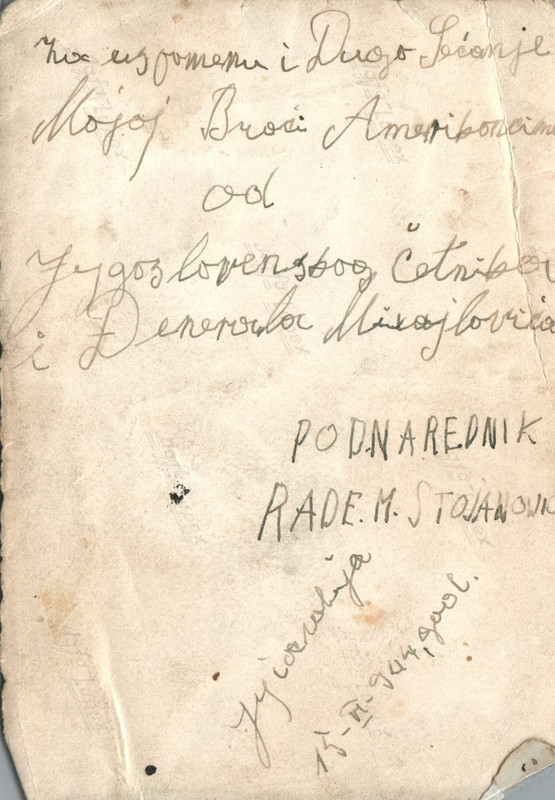 za uspomenu i Dugo Sećanje
Mojoj Braći Amerikancima
od
Jygoslovenskog Četnika
i Đenerala Mixajlovića
PODNAREDNIK
RADE. M. STOJANOVIĆ
15-VI-944, god.